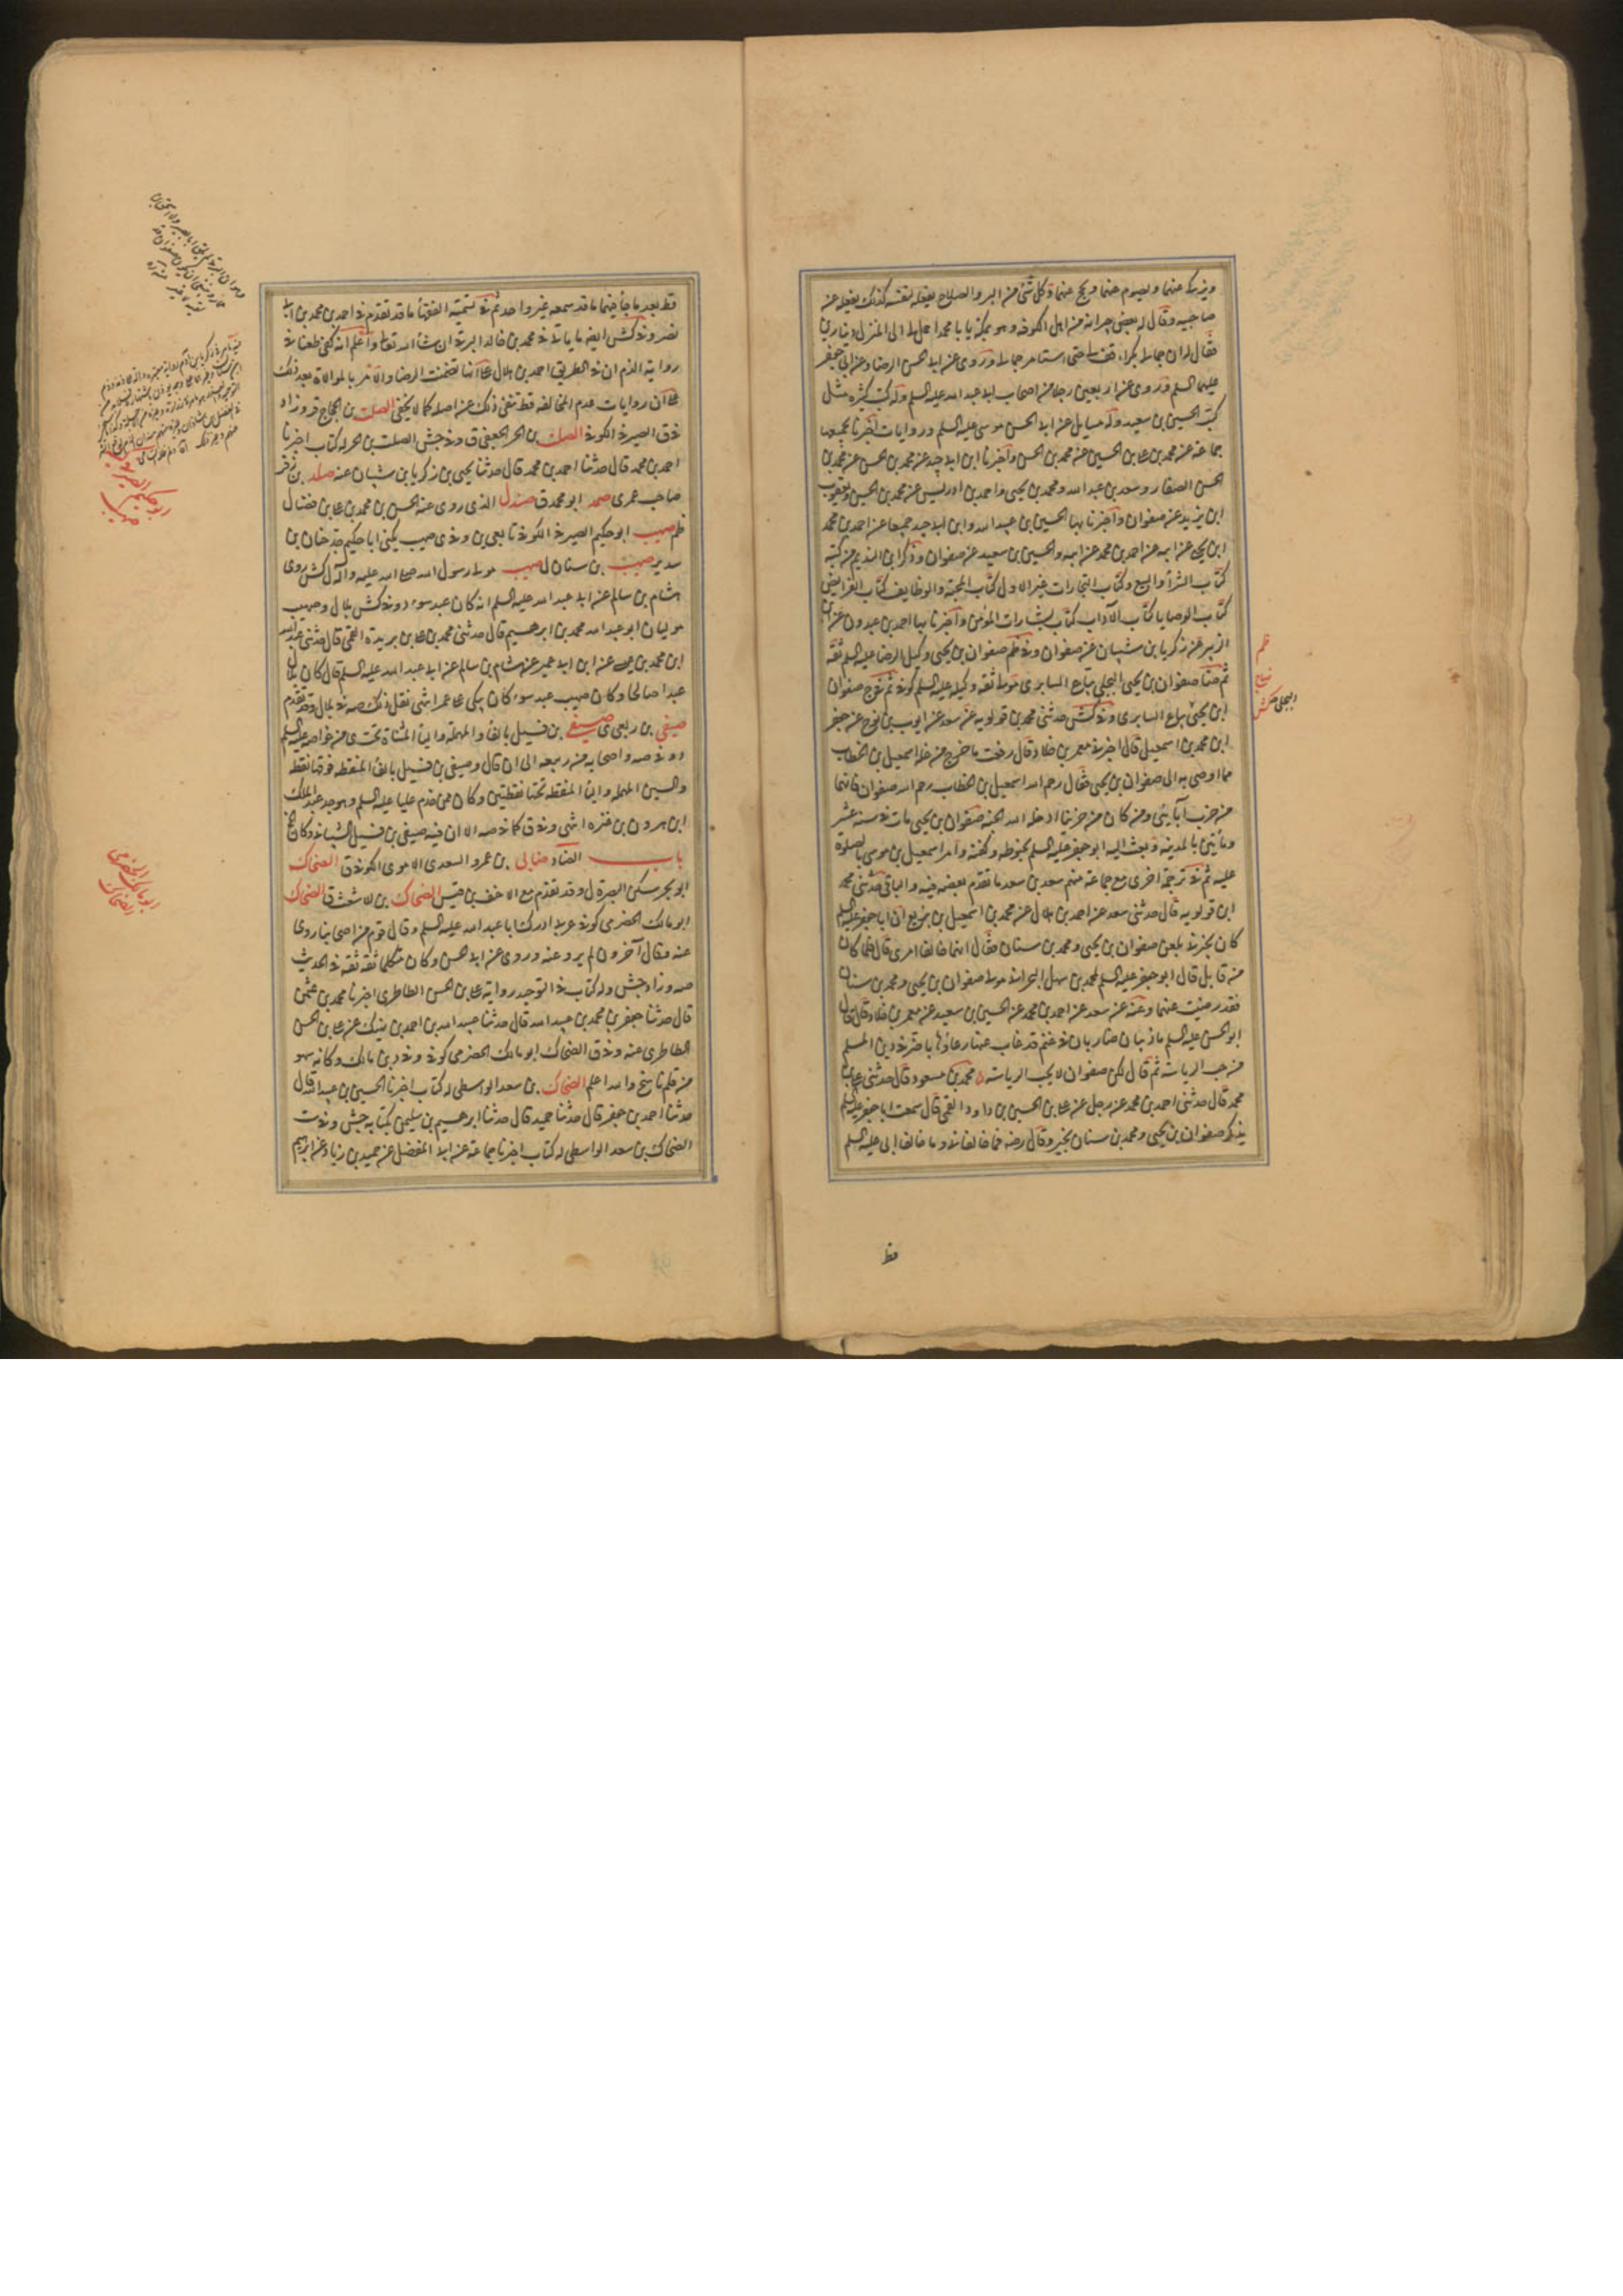 ويزكى عنهما ويصوم عنهما ويحج عنهما وكل شئ من البر والصلاح يفعله لنفسه كذلك يفعله عن
صاحبيه وقال له بعض جيرانه من اهل الكوفه وهو بمكة يا با محمد احمل لى الى المنزل دينارين
فقال له ان جمالى بكراء قف حتى استامر جمالى وروى عن ابى الحسن الرضا وعن ابى جعفر
عليهما السلم وروى عن اربعين رجلا من اصحاب ابى عبد الله عليه السلم وله كتب كثيره مثل
كتب الحسين بن سعيد وله مسايل عن ابى الحسن موسى عليه السلم وروايات اخبرنا بجميعها
جماعة عن محمد بن على بن الحسين عن محمد بن الحسن واخبرنا ابن ابى جيد عن محمد بن الحسن عن محمد بن
الحسن الصفار وسعد بن عبد الله ومحمد بن يحيى واحمد بن ادريس عن محمد بن الحسين ويعقوب
ابن يزيد عن صفوان واخبرنا بها الحسين بن عبيد الله وابن ابى جيد جميعا عن احمد بن محمد
ابن يحيى عن ابيه عن احمد بن محمد عن ابيه والحسين بن سعيد عن صفوان وذكر ابن النديم من كتبه
كتاب الشرآ والبيع وكتاب التجارات غير الاول كتاب المحبة والوظايف كتاب الفرايض
كتاب الوصايا كتاب الآداب كتاب بشارات المؤمن واخبرنا بها احمد بن عبدون عن ابن
الزبير عن زكريا بن شيبان عن صفوان وفى ظم صفوان بن يحيى وكيل الرضا عليه السلم ثقة
ثم ضا صفوان بن يحيى البجلى بياع السابرى مولى ثقه وكيله عليه السلم كوفى ثم ج صفوان
ابن يحيى بياع السابرى وفى كش حدثنى محمد بن قولويه عن سعد عن ايوب بن نوح عن جعفر
ابن محمد بن اسمعيل قال اخبرنى معمر بن خلاد قال رفعت ما خرج من غلة اسمعيل بن الخطاب
مما اوصى به الى صفوان بن يحيى فقال رحم الله اسمعيل بن الخطاب رحم الله صفوان فانهما
من حزب آبائى ومن كان من حزبنا ادخله الله الجنة صفوان بن يحيى مات فى سنه عشر
ومأيتين بالمدينة وبعث اليه ابو جعفر عليه السلم بحنوطه وكفنه وامر اسمعيل بن موسى بالصلوة
عليه ثم فى ترجمة اخرى مع جماعة منهم سعد بن سعد ما تقدم بعضه فيه والباقى حدثنى محمد
ابن قولويه قال حدثنى سعد عن احمد بن هلال عن محمد بن اسمعيل بن بزيع ان ابا جعفر عليه السلم
كان يخبرنى بلعن صفوان بن يحيى ومحمد بن سنان فقال انهما خالفا امرى قال فلما كان
من قابل قال ابو جعفر عليه السلم لمحمد بن سهل البحرانى تول صفوان بن يحيى ومحمد بن سنان
فقد رضيت عنهما وعنه عن سعد عن احمد بن محمد عن الحسين بن سعيد عن معمر بن خلاد قال قال
ابو الحسن عليه السلم ما ذئبان ضاريان فى غنم قد غاب عنها رعاؤها باضر فى دين المسلم
من حب الرياسة ثم قال لكن صفوان لا يحب الرياسة محمد بن مسعود قال حدثنى على بن
محمد قال حدثنى احمد بن محمد عن رجل عن على بن الحسين بن داود القمى قال سمعت ابا جعفر عليه السلم
يذكر صفوان بن يحيى ومحمد بن سنان بخير وقال رضى فما خالفانى وما خالفا ابى عليه السلم
ظم
ضا ج
البجلى كش
قط
قط بعد ما جآ فيهما ما قد سمعه غير واحد ثم فى تسمية الفقهآ ما قد تقدم فى احمد بن محمد بن ابى
نصر وفى كش ايضا ما ياتى فى محمد بن خالد البرقى ان شآ الله تعالى واعلم انه كفى طعنا فى
رواية الذم ان فى الطريق احمد بن هلال على انها تضمنت الرضا والامر بالموالاة بعد ذلك
على ان روايات عدم المخالفه قط تنفى ذلك عن اصله كما لا يخفى الصلت بن الحجاج ق وزاد
فى ق الصيرفى الكوفى الصلت بن الحر الجعفى ق وفى جش الصلت بن الحر له كتاب اخبرنا
احمد بن محمد قال حدثنا احمد بن محمد قال حدثنا يحيى بن زكريا بن شيبان عنه صلد بن زفر
صاحب عمرى صمد ابو محمد ق صندل الذى روى عنه الحسن بن محمد بن على بن فضال
ظم صهيب ابو حكيم الصيرفى الكوفى تابعى ين وفى ى صهيب يكنى ابا حكيم جد حنان بن
سدير صهيب بن سنان ل صهيب مولى رسول الله صلى الله عليه وآله ل كش روى
هشام بن سالم عن ابى عبد الله عليه السلم انه كان عبد سوء د وفى كش بلال وصهيب
موليان ابو عبد الله محمد بن ابرهيم قال حدثنى محمد بن على بن يزيد القمى قال حدثنى عبد الله
ابن محمد بن عيسى عن ابن ابى عمير عن هشام بن سالم عن ابى عبد الله عليه السلم قال كان بلال
عبدا صالحا وكان صهيب عبد سوء كان يبكى على عمر انتهى نقل ذلك صه فى بلال وقد تقدم
صيفى بن ربعى ى صيفى بن فسيل بالفآ والمهملة واليآ المثناة تحت ى من خواصه عليه السلم
د وفى صه واصحابه من ربيعه الى ان قال وصيفى بن فسيل بالفآ المنقطه فوقها نقطه
والسين المهمله واليآ المنقطه تحتها نقطتين وكان ممن خدم عليا عليه السلم وهو جد عبد الملك
ابن هرون بن عنتره انتهى وفى ق كما فى صه الا ان فيه صيفى بن فسيل الشيبانى وكان الخ
باب الضاد ضابى بن عمرو السعدى الاموى الكوفى ق الضحاك
ابو بحر سكن البصرة ل وقد تقدم مع الاحنف بن قيس الضحاك بن الاشعث ق الضحاك
ابو مالك الحضرمى كوفى عربى ادرك ابا عبد الله عليه السلم وقال قوم من اصحابنا روى
عنه وقال آخرون لم يرو عنه وروى عن ابى الحسن وكان متكلما ثقة ثقة فى الحديث
صه وزاد جش وله كتاب فى التوحيد رواية على بن الحسن الطاطرى اخبرنا محمد بن عثمن
قال حدثنا جعفر بن محمد بن عبيد الله قال حدثنا عبيد الله بن احمد بن نهيك عن على بن الحسن
الطاطرى عنه وفى ق الضحاك ابو مالك الحضرمى كوفى وفى د بن مالك وكانه سهو
من قلم ناسخ والله اعلم الضحاك بن سعد الواسطى له كتاب اخبرنا الحسين بن عبيد الله قال
حدثنا احمد بن جعفر قال حدثنا حميد قال حدثنا ابرهيم بن سليمن بكتابه جش وفى ست
الضحاك بن سعد الواسطى له كتاب اخبرنا جماعة عن ابى المفضل عن حميد بن زياد عن ابرهيم
ابو حكيم الصيرفى
صهيب
ابو مالك الحضرمى
الضحاك